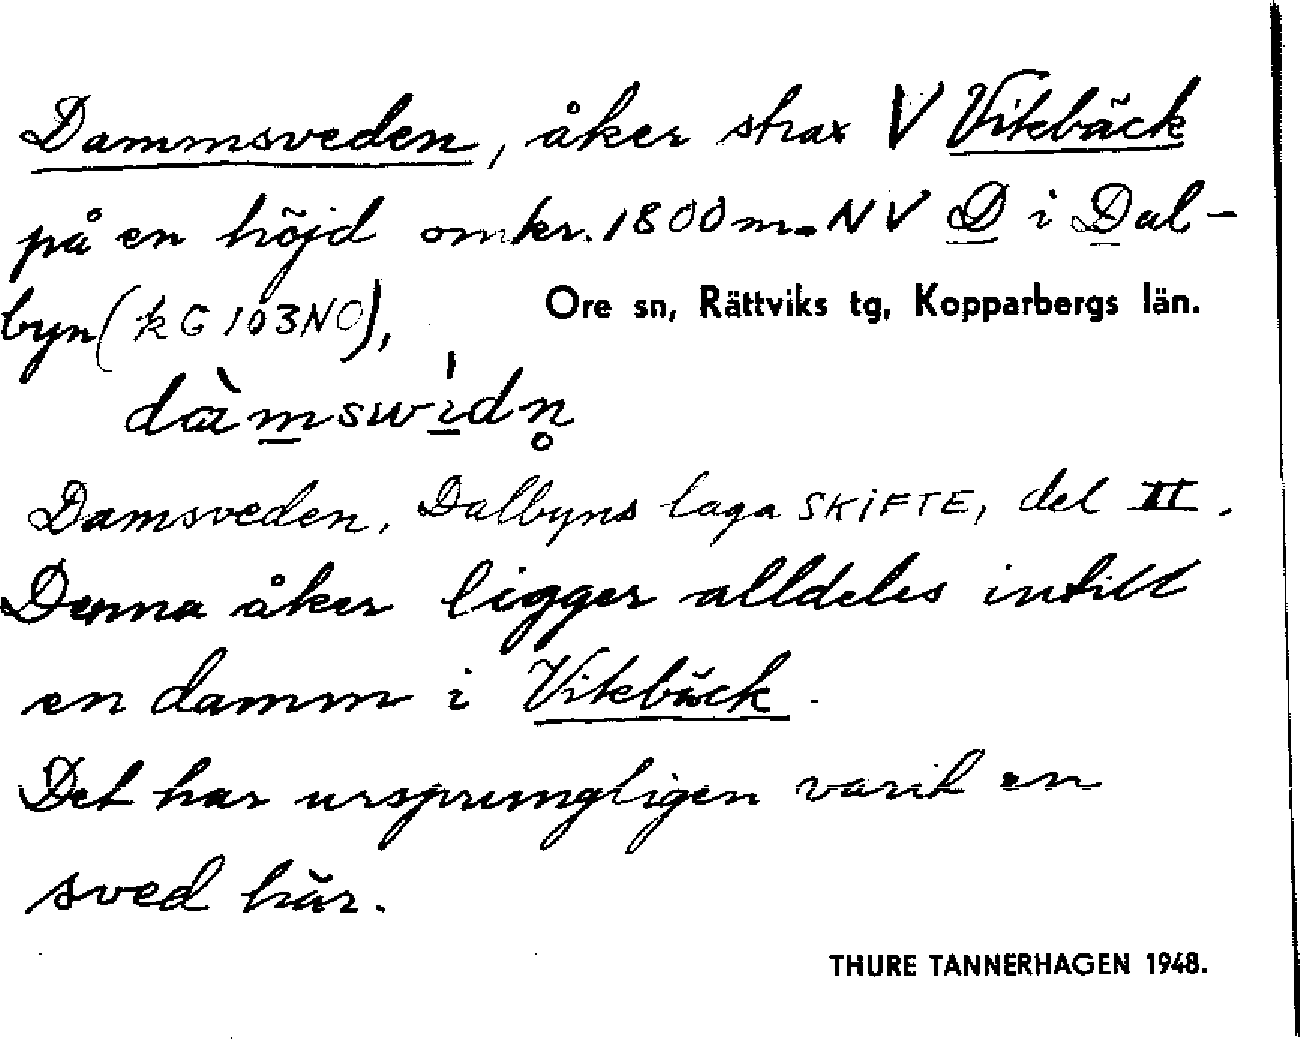 Dammsveden, åker strax V Vitebäck
på en höjd omkr. 1800 m. NV D i Dal-
byn (kG 103NO),
Ore sn, Rättviks tg, Kopparbergs län.
dàmswídn̥
Damsveden, Dalbyns laga SKIFTE, del II.
Denna åker ligger alldeles intill
en damm i Vitebäck.
Det har ursprungligen varit en
sved här.
THURE TANNERHAGEN 1948.